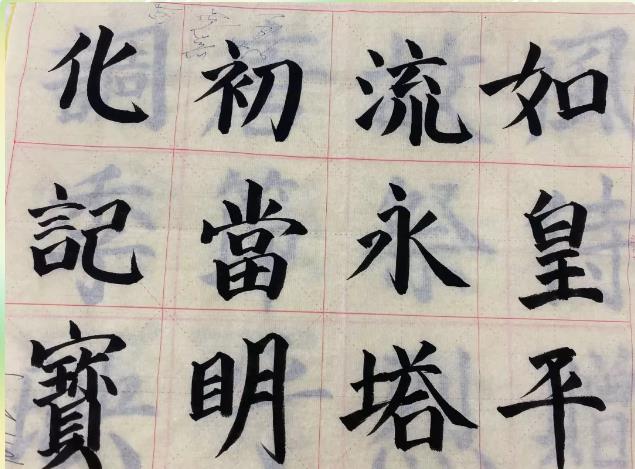 如皇平
流永塔
初當眀
化記寶